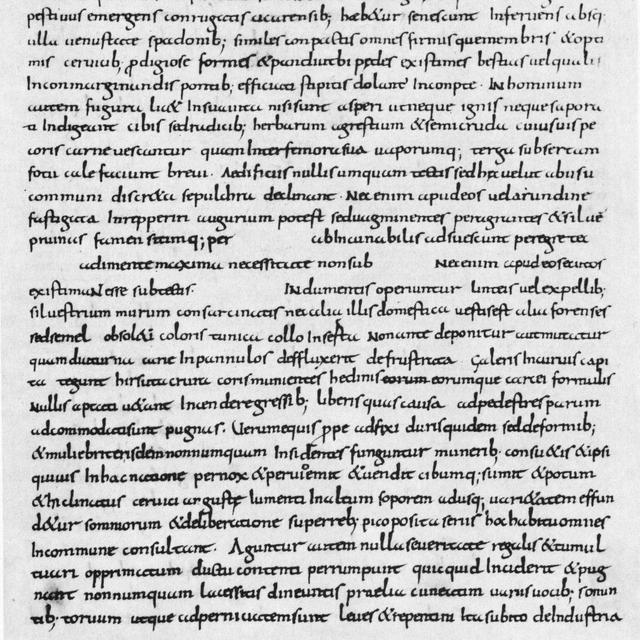 pestiuus emergens conrugatis cicurensib; habetur senescunt Inferuens absq;
ulla uenustate spadonib; similes conpactis omnes firmisque membris & opi
mis ceruicib; prodigiose formes & pandi utbi pedes existimes bestias uel quales
Inconmarginandis pontib; efficiati stipites dolant Incompte. In hominum
autem figura lic& Insuaui ita nisi sunt asperi ut neque igni neque sapora
tis Indigeant cibis sed radicib; herbarum agrestium & semicruda cuiusuis pe
coris carne uescantur quam Inter femora sua uaporumq; terga subsertam
fotu calefaciunt breui. Aedificiis nullis umquam tectis sed haec uelut ab usu
communi discreta sepulchra declinant. Nec enim apud eos uel arundine
fastigata Inrepperiri tugurium potest sed uagi mi nentes peragrantes & siluas
pruinas famem sitimq; per ab Incunabilis adsuescunt peregre te
adimente maxima necessitate non sub Nec enim apud eos securos
existimant esse sub tectis. Indumentis operiuntur linteis uel ex pellib;
siluestrium murum consarcinatis nec alia illis domestica uestis est alia forenses
sed semel obsol&i coloris tunica collo Inserta non ante deponitur aut mutatur
quam diuturna carie In pannulos deffluxerit defrustrata Galeris Incuruis capi
ta tegunt hirsuta crura coris munientes hedinis eorum eorumque carcei formulis
nullis aptati u&ant Incendere gressib; liberis qua causa ad pedestres parum
adcommodati sunt pugnas. Uerum equis ppe adfixi duris quidem sed deformib;
& muliebriter isdem nonnumquam Insidentes funguntur munerib; consu&is & ipsi
quiuis In hac natione pernox & peruiem it & uendit cibumq; sumit & potum
& Inclinatus ceruici anguste Iumenti In altum soporem adusq; uari&atem effun
d&ur somniorum & deliberatione super reb; proposita seriis hoc habitu omnes
In commune consultant. Aguntur autem nulla seueritate regali & tumul
tuari opprimatum ductu contenti perrumpunt quicquid Inciderit & pug
nant nonnumquam lacessiti dineuntis proelia cuneatim uariis uocib; sonan
tib; toruum utque ad pernicitatem sunt leues & repentini ita subito de Industria